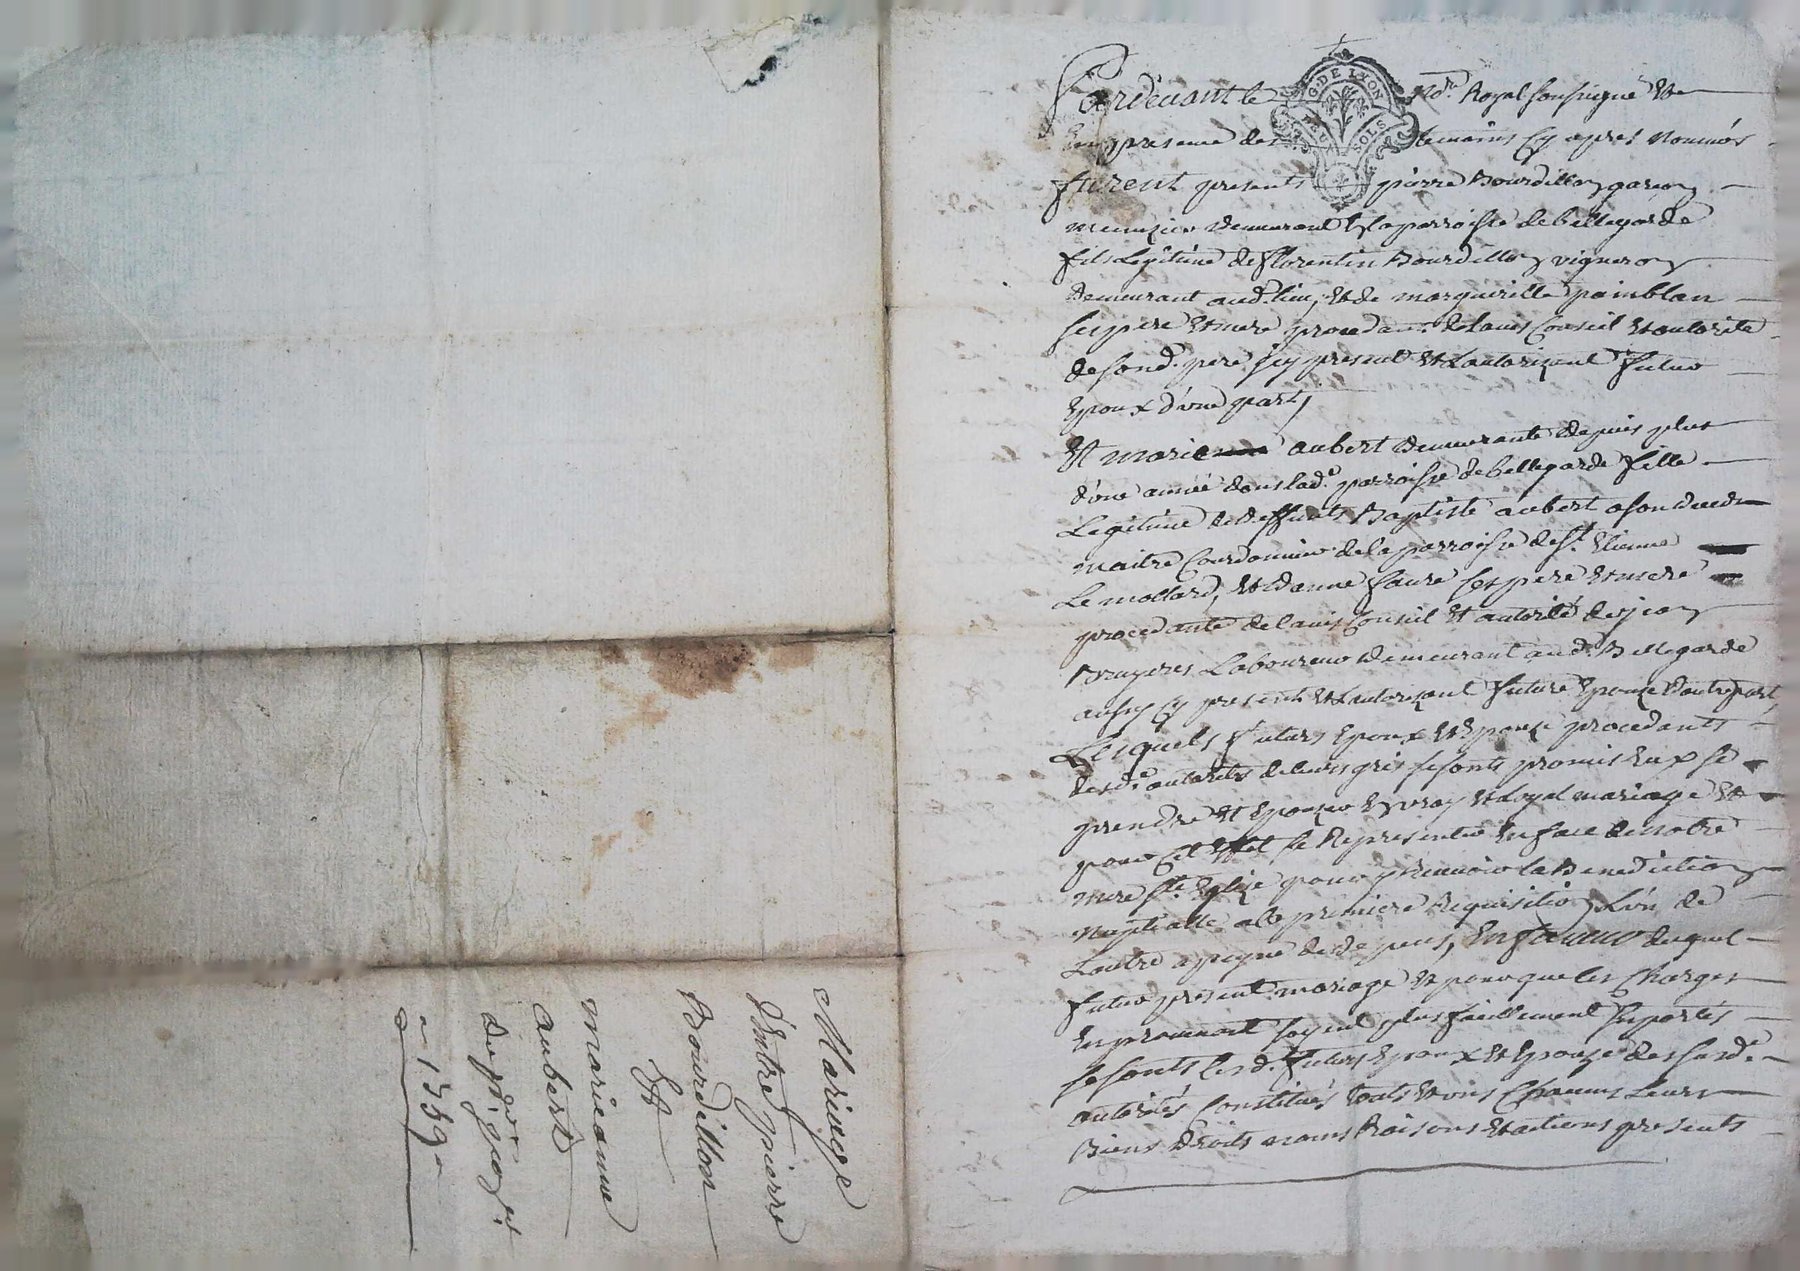 Mariage
D'Entre pierre
Bourdillon
Et
marieanne
aubert
1759
G. DE LYON
SOLS
Pardevant le No.re Royal soussigné Et
En presence des temoins Cy apres nommés
furent presents pierre Bourdillon garçon
menuzier demeurant En la parroisse de bellegarde
fils Legitime de florentin Bourdillon vigneron
demeurant aud. lieu, Et de margueritte painblan
ses pere Et mere procedant de lavis Conseil Et autorité
de sond. pere icy present Et Lautorizant futur
Epoux d'une part,
Et marie aubert demeurante depuis plus
d'une année dans lad.e parroisse de bellegarde fille
Legitime de deffunts Baptiste aubert a son vivant
maitre Cordonnier de la parroisse de St. Etienne
Le mollard, Et d'anne faure ses pere Et mere
procedante de lavis Conseil Et autorité de jean
Bruyeres Laboureur demeurant aud. Bellegarde
aussy Cy present Et Lautorizant future Epouze d'autre part,
Lesquels futurs Epoux Et Epouze procedants
desd.e autorités de leurs grés se sonts promis Eux se
prendre Et Epouzer En vray Et Loyal mariage Et
pour Cet Effet se Representer En face de notre
mere St.e Eglize pour y Recevoir la Benediction
nuptialle a la premiere Requisition L'un de
Lautre a peyne de depens, En faveur duquel
futur present mariage Et pour que les Charges
En provenant soyent plus facillement suportés
se sonts lesd. futurs Epoux Et Epouze des susd.e
autorités Constitués touts Et uns Chacuns Leurs
Biens droits noms Raisons Et actions presents